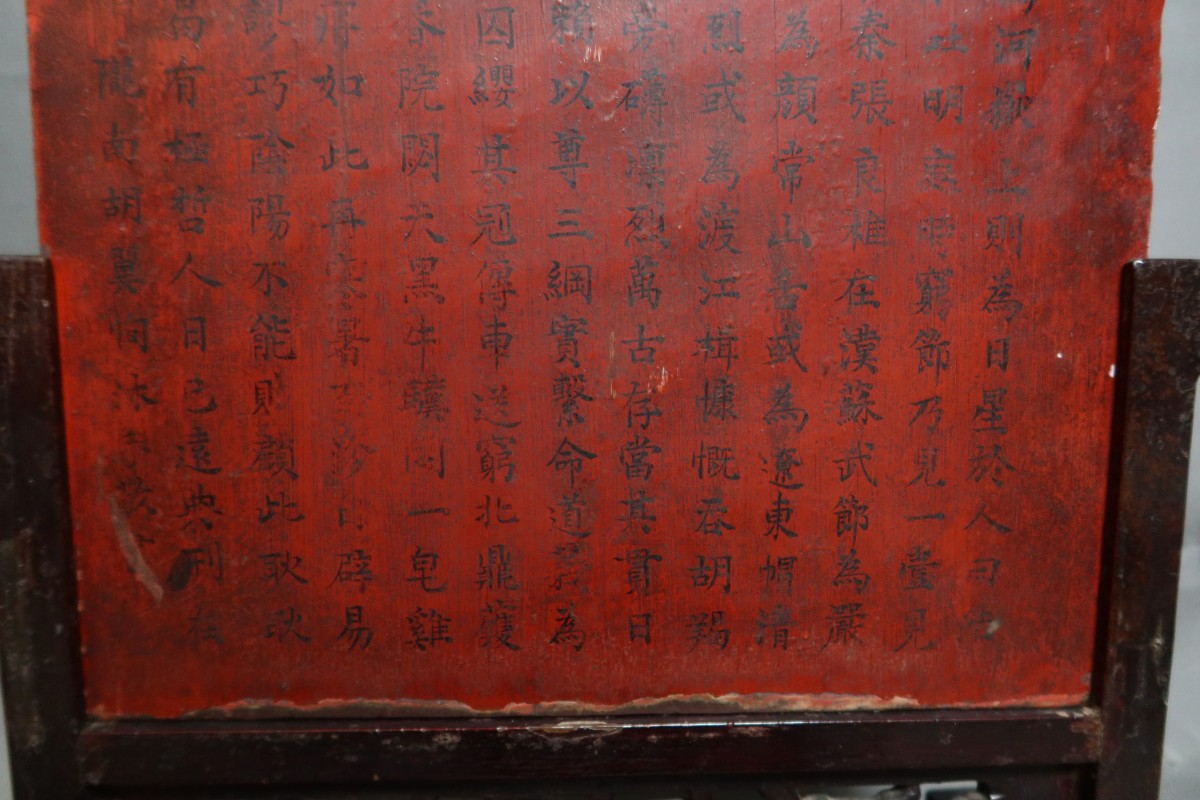 河嶽上則為日星於人曰
吐明庭時窮節乃見一見
秦張良椎在漢蘇武節為嚴
為顏常山舌或為遼東帽清
烈或為渡江楫慷慨吞胡羯
旁礴凛烈萬古存當其貫日
賴以尊三綱實繫命道義為
囚纓其冠傳車送窮北鼎鑊
院閟天黑牛驥同一皂雞
如此再寒暑沴自辟易
謬巧陰陽不能賊顧此耿耿
曷有極哲人日已遠典刑在
隴南胡翼恫沐